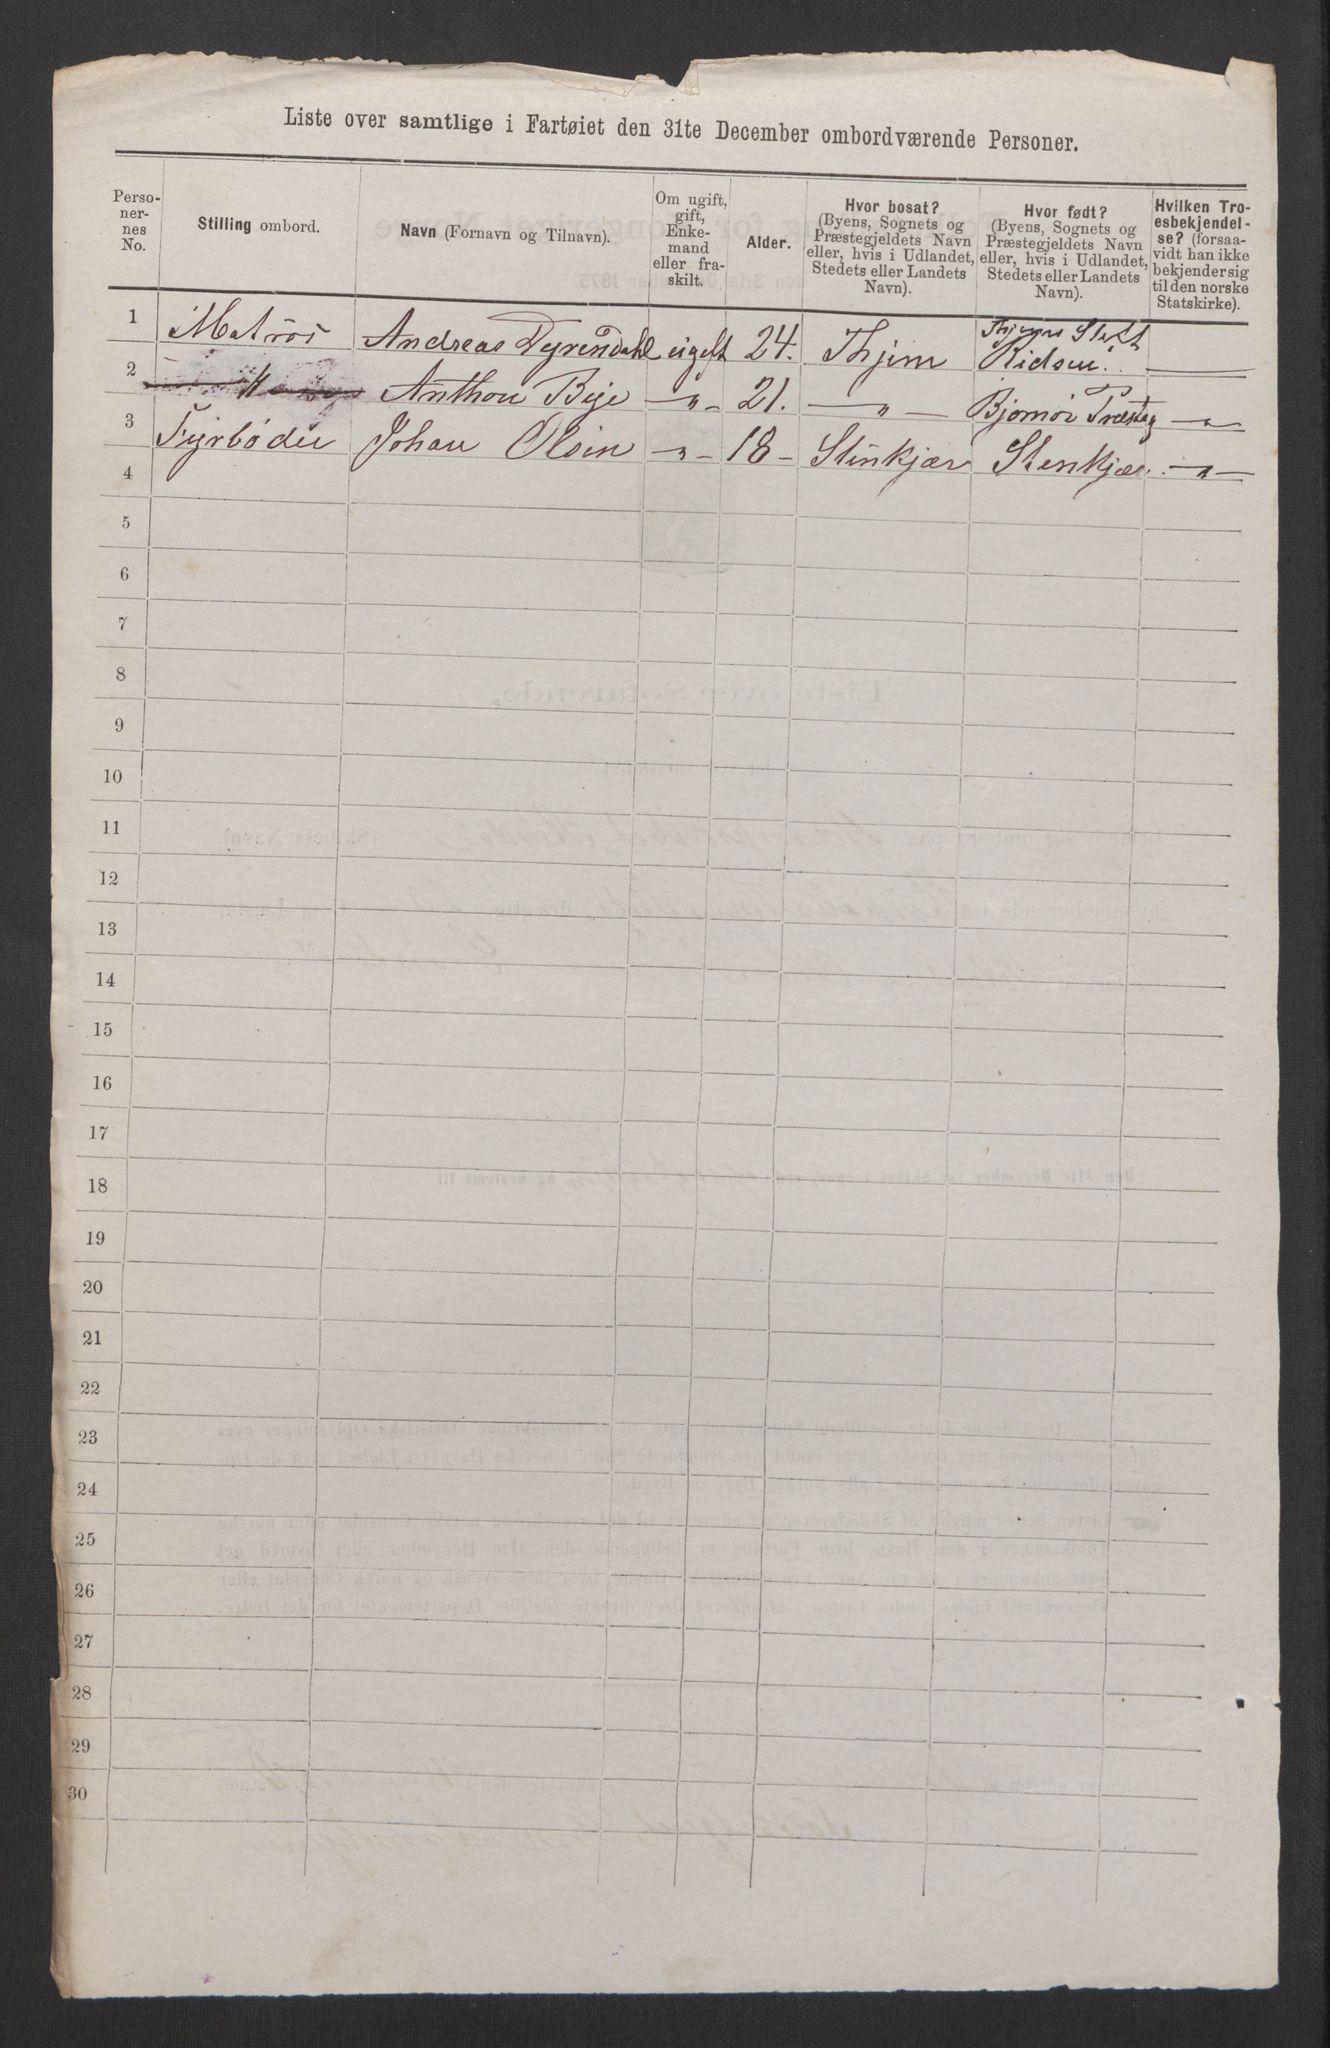 Liste over samtlige i Fartøiet den 31te December ombordværende Personer.
Perso-
ner-
nes
No.
Stilling ombord.
Navn (Fornavn og Tilnavn).
Om ugift,
gift,
Enke-
mand
eller fra-
skilt.
Alder.
Hvor bosat?
(Byens, Sognets og
Præstegjeldets Navn
eller, hvis i Udlandet,
Stedets eller Landets
Navn).
Hvor født?
(Byens, Sognets og
Præstegjeldets Navn
eller, hvis i Udlandet,
Stedets eller Landets
Navn).
Hvilken Tro-
esbekjendel-
se? (forsaa-
vidt han ikke
bekjender sig
til den norske
Statskirke).
1 Matros Andreas Dyrendahl ugift 24. Thjem
2 " Anthon Bye — " — 21. — " — Bjornør — " —
3 Fyrbøder Johan Olsen — " — 18 — Stenkjær Stenkjær — " —
4
5
6
7
8
9
10
11
12
13
14
15
16
17
18
19
20
21
22
23
24
25
26
27
28
29
30